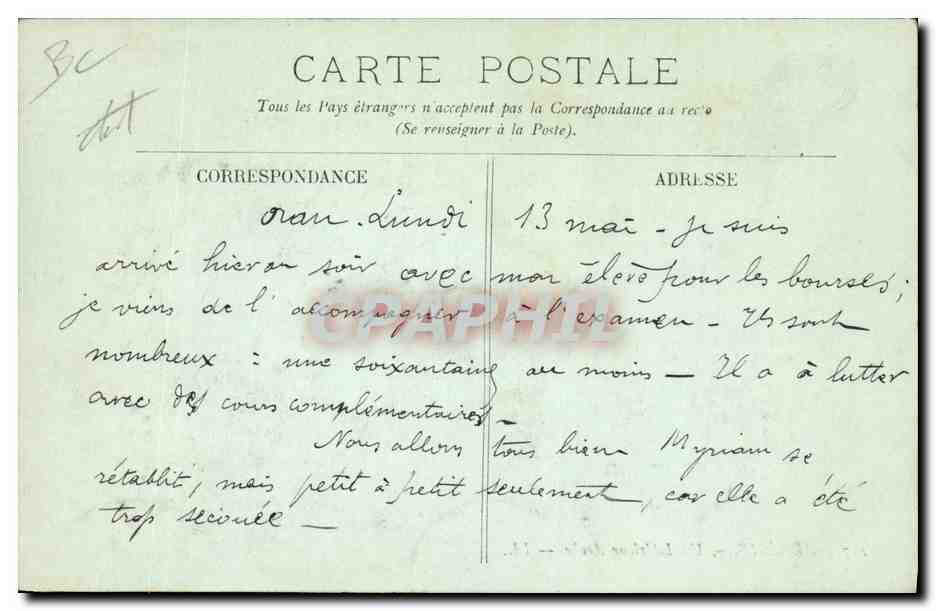 BC
CARTE POSTALE
Tous les Pays étrangers n'acceptent pas la Correspondance au recto
(Se renseigner à la Poste).
CORRESPONDANCE
ADRESSE
Oran. Lundi 13 mai - Je suis
arrivé hier au soir avec mon élève pour les bourses;
je viens de l'accompagner à l'examen - Ils sont
nombreux : une soixantaine au moins - Il a à lutter
avec des cours complémentaires -
Nous allons tous bien Myriam se
rétablit, mais petit à petit seulement, car elle a été
trop secouée -
CPAPHIL